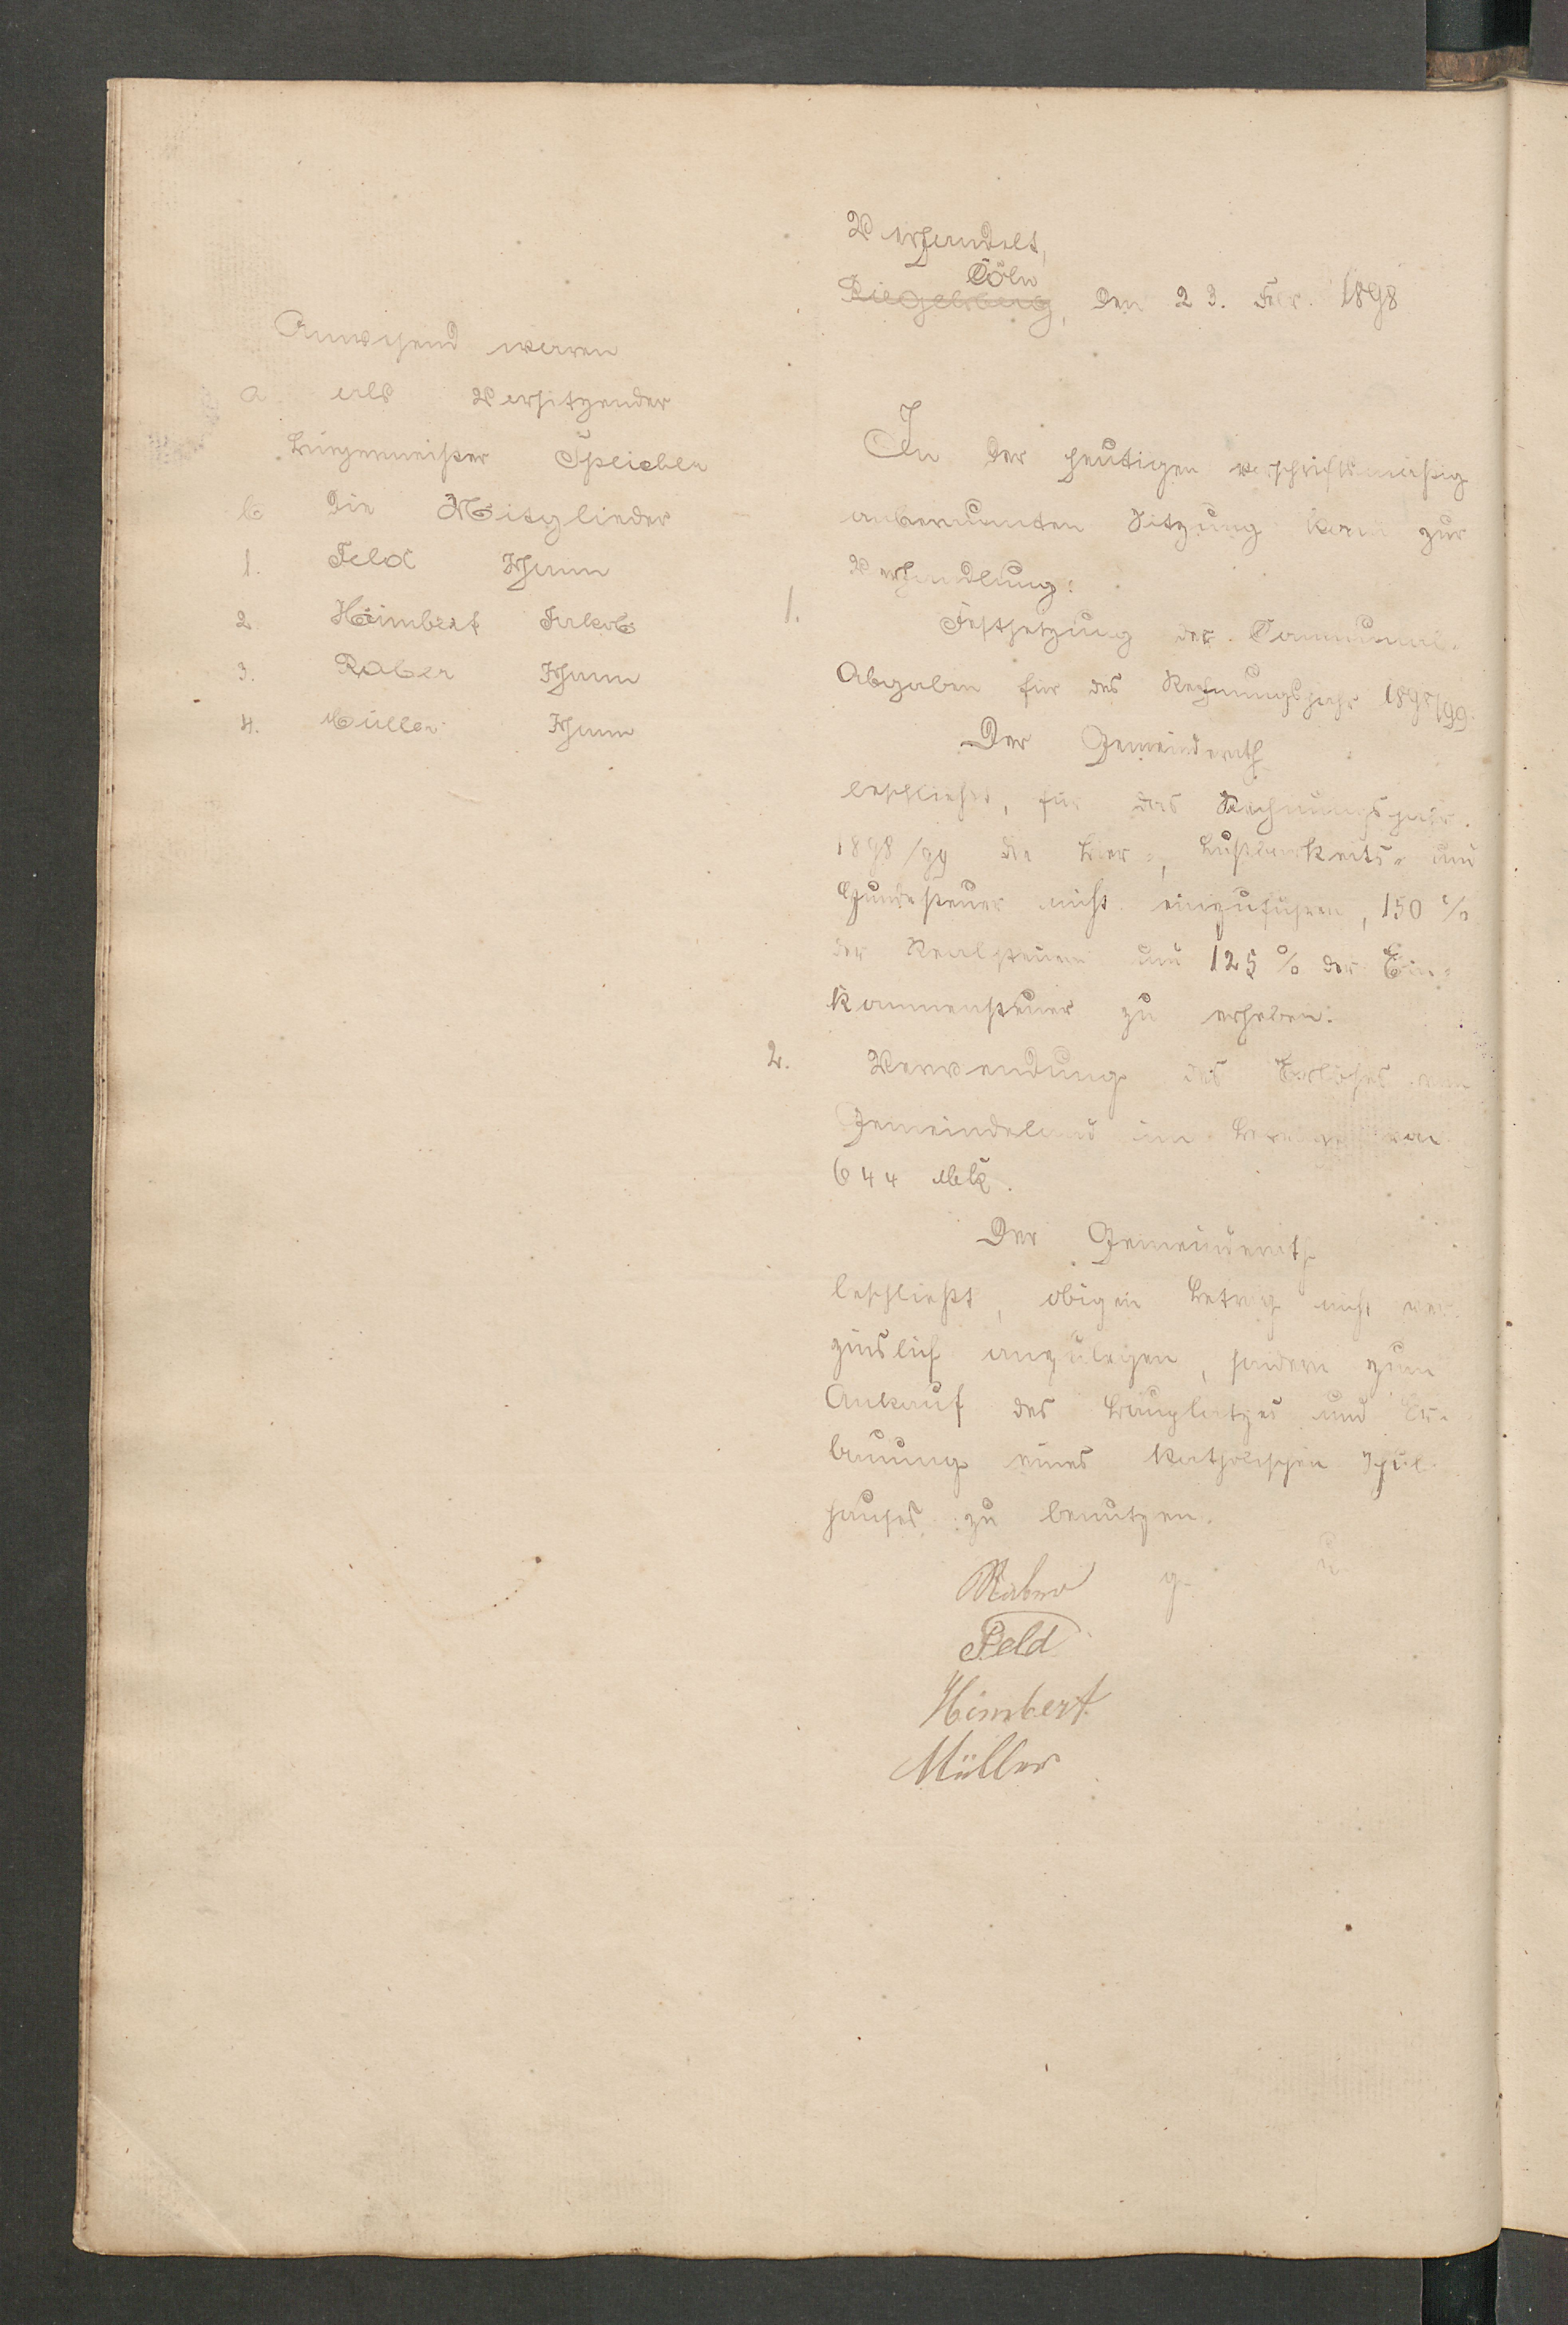 Verhandelt,
Cöln
Riegelsberg, den 23. Febr. 1898
Anwesend waren
a als Vorsitzender
Bürgermeister Speicher
b die Mitglieder
1. Feld Johann
2. Himbert Jakob
3. Raber Johann
4. Müller Johann
In der heutigen vorschriftsmäßig
anberaumten Sitzung kam zur
Verhandlung:
1. Festsetzung der Communal-
Abgaben für das Rechnungsjahr 1898/99.
Der Gemeinderath
beschließt, für das Rechnungsjahr
1898/99 die Bier-, Lustbarkeits- und
Hundesteuer nicht einzuführen, 150 %
der Realsteuern und 125 % der Ein-
kommensteuer zu erheben.
2. Verwendung des Erlöses von
Gemeindeland im Betrage von
644 Mk.
Der Gemeinderath
beschließt, obigen Betrag nicht ver-
zinslich anzulegen, sondern zum
Ankauf des Bauplatzes und Er-
bauung eines katholischen Schul-
hauses zu benutzen.
g. u.
Raber
Feld
Himbert
Müller